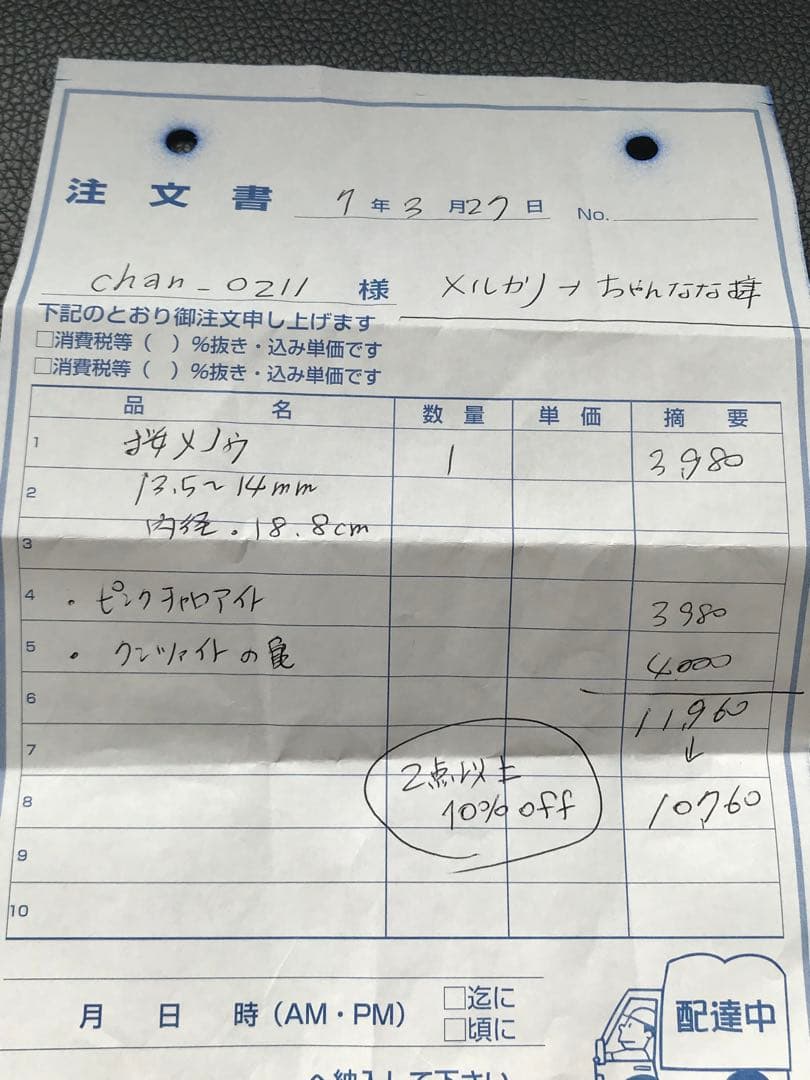 注文書 7年3月27日 No.
chan-0211 様 メルカリ→ちゃんなな様
下記のとおり御注文申し上げます
□消費税等( )%抜き・込み単価です
□消費税等( )%抜き・込み単価です
品名 数量 単価 摘要
1 桜メノウ 1 3,980
2 13.5~14mm
内径.18.8cm
3
4 ・ピンクチャロアイト 3980
5 ・クンツァイトの亀 4,000
6 11,960
7 ↓
2点以上
8 10%off 10,760
9
10
月 日 時(AM・PM) □迄に
□頃に
配達中
へ納入して下さい